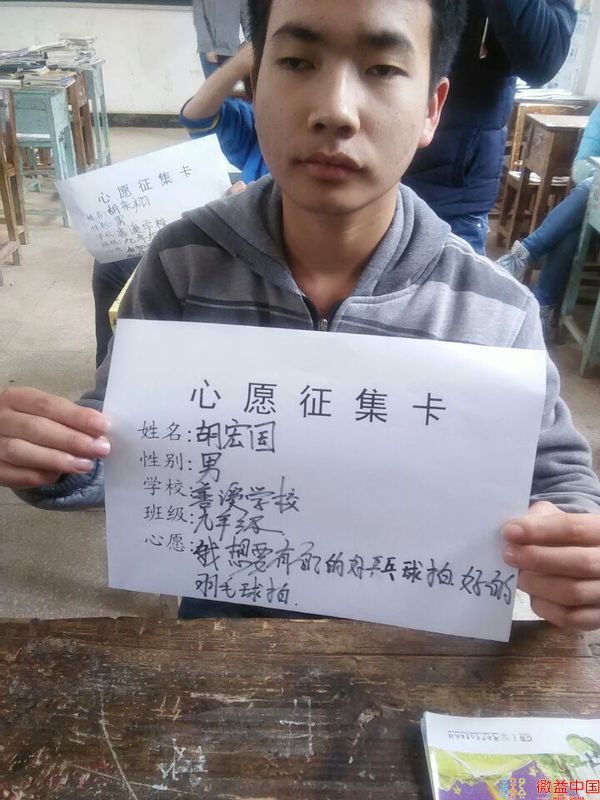 心愿征集卡
姓名:胡宏国
性别:男
学校:善溪学校
班级:九年级
心愿:我想要有
的乒乓球拍 好的
羽毛球拍.
心愿征集卡
姓名:胡
性别:男
溪学校
微益中国